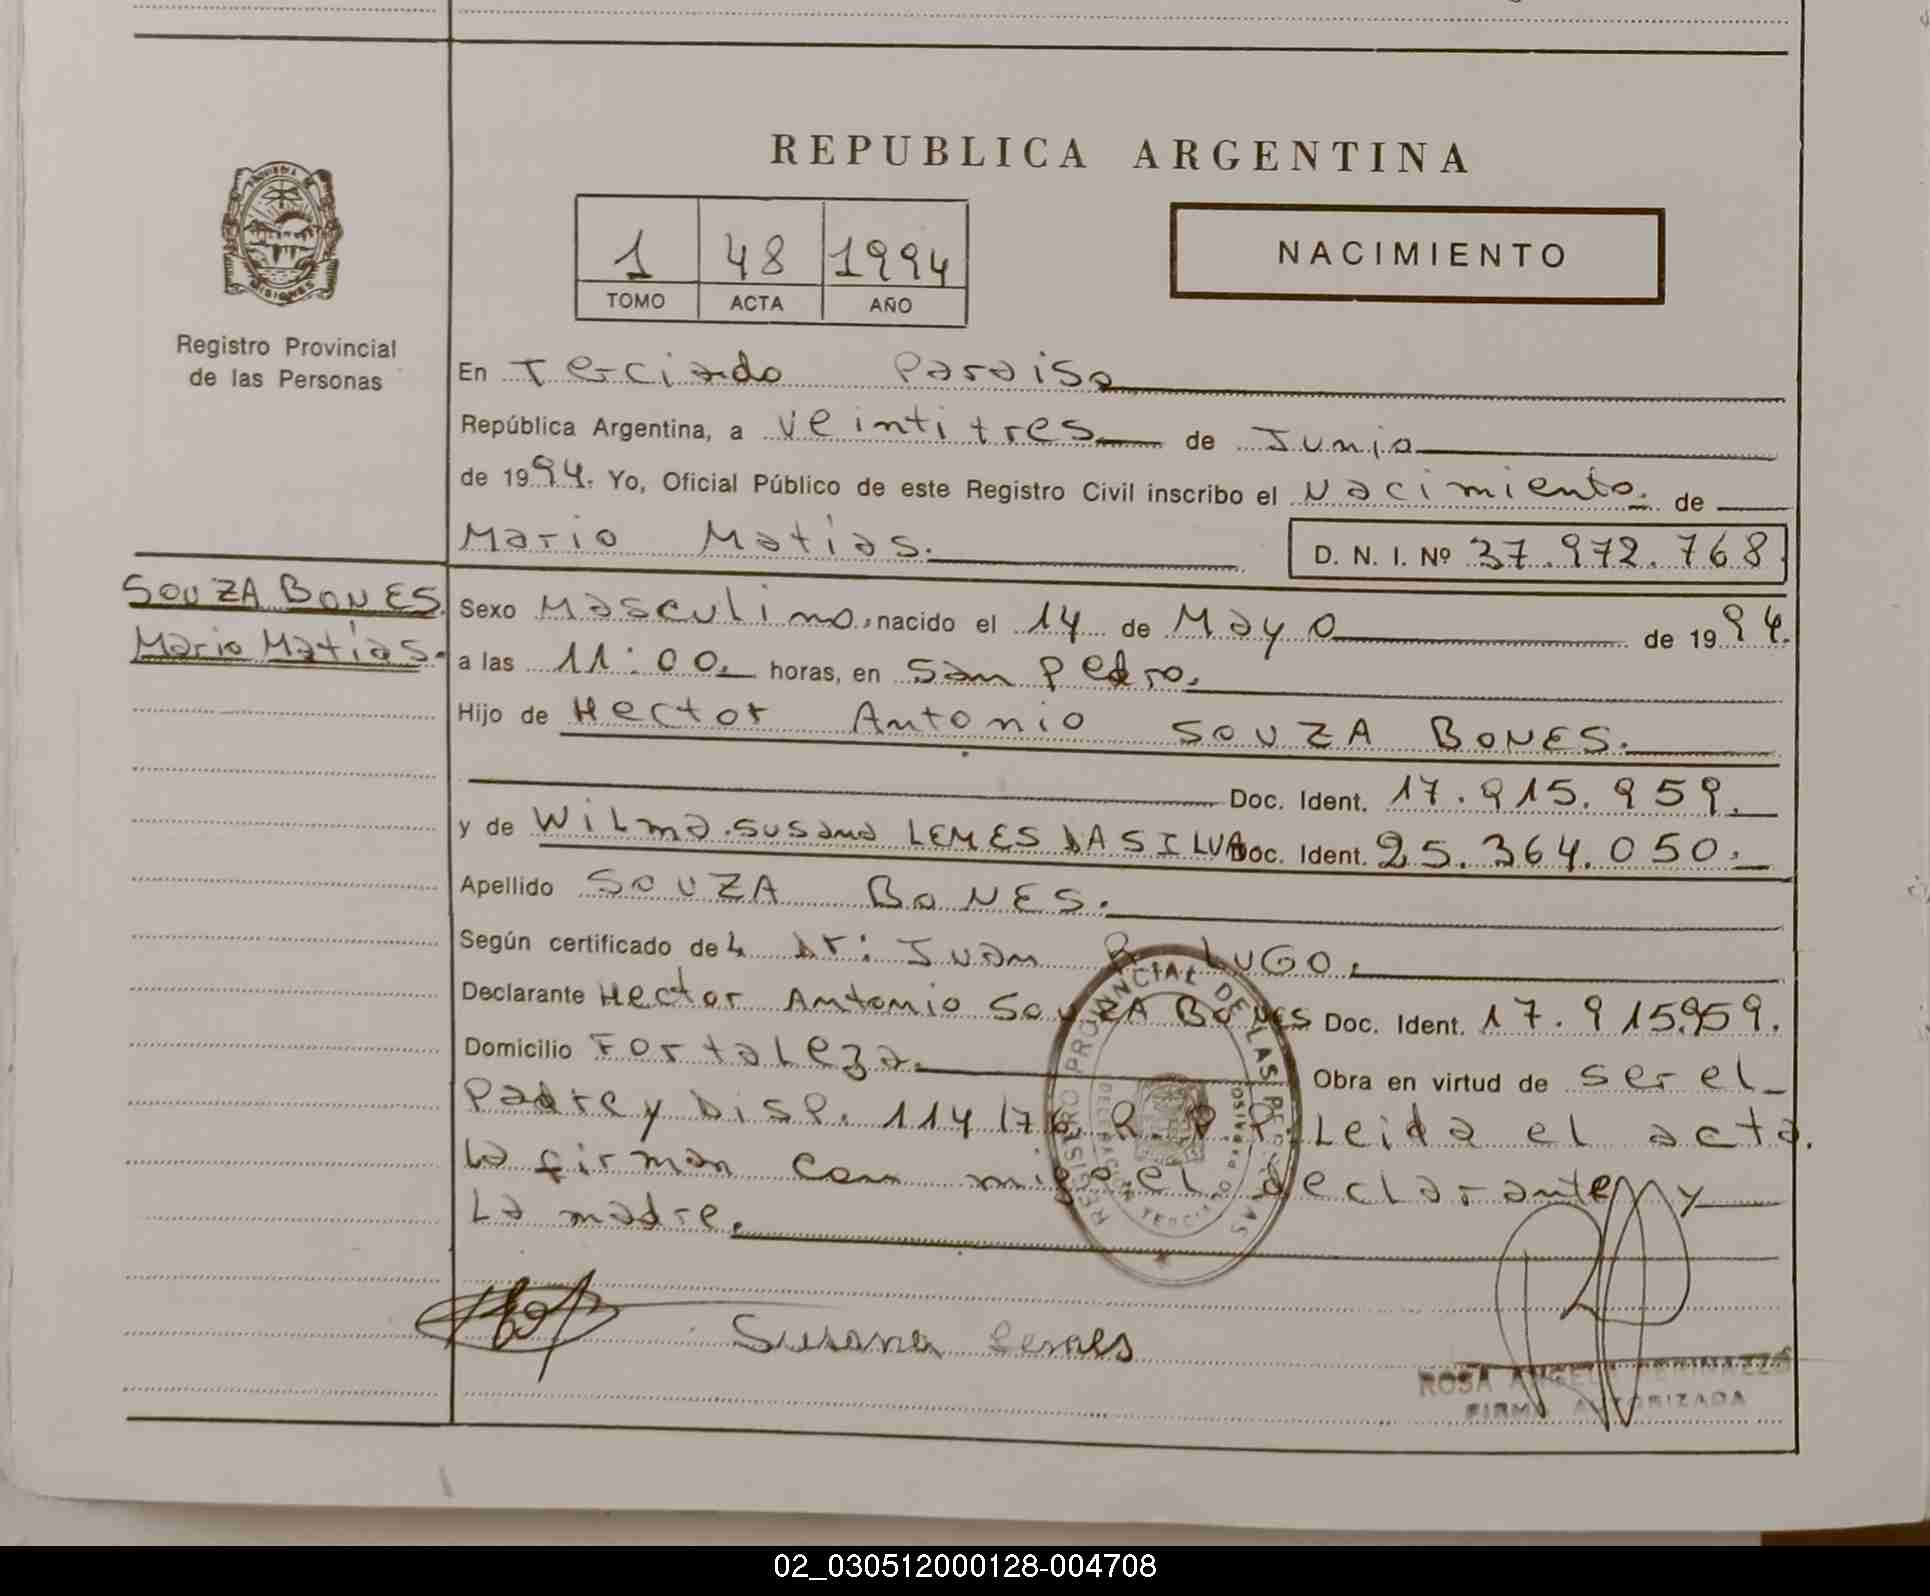 REPUBLICA ARGENTINA
PROVINCIA DE
MISIONES
Registro Provincial
de las Personas
1 48 1994
TOMO ACTA AÑO
NACIMIENTO
En Terciado Paraiso
República Argentina, a veintitres de Junio
de 1994. Yo, Oficial Público de este Registro Civil inscribo el Nacimiento. de
Mario Matías. D. N. I. Nº 37.972.768
SOUZA BONES.
Mario Matías.
Sexo Masculino, nacido el 14 de Mayo de 1994.
a las 11:00. horas, en San Pedro.
Hijo de Hector Antonio SOUZA BONES.
Doc. Ident. 17.915.959.
y de Wilma Susana LEMES DA SILVA Doc. Ident. 25.364.050.
Apellido SOUZA BONES.
Según certificado del Dr: Juan R. LUGO.
Declarante Hector Antonio SOUZA BONES Doc. Ident. 17.915.959.
Domicilio Fortaleza. Obra en virtud de ser el
Padre y DISP. 114/76 R. P. P. Leida el acta.
La firman con migo el declarante y
La madre.
REGISTRO PROVINCIAL DE LAS PERSONAS
Susana Lemes
ROSA ANGELA
FIRMA AUTORIZADA
02_030512000128-004708